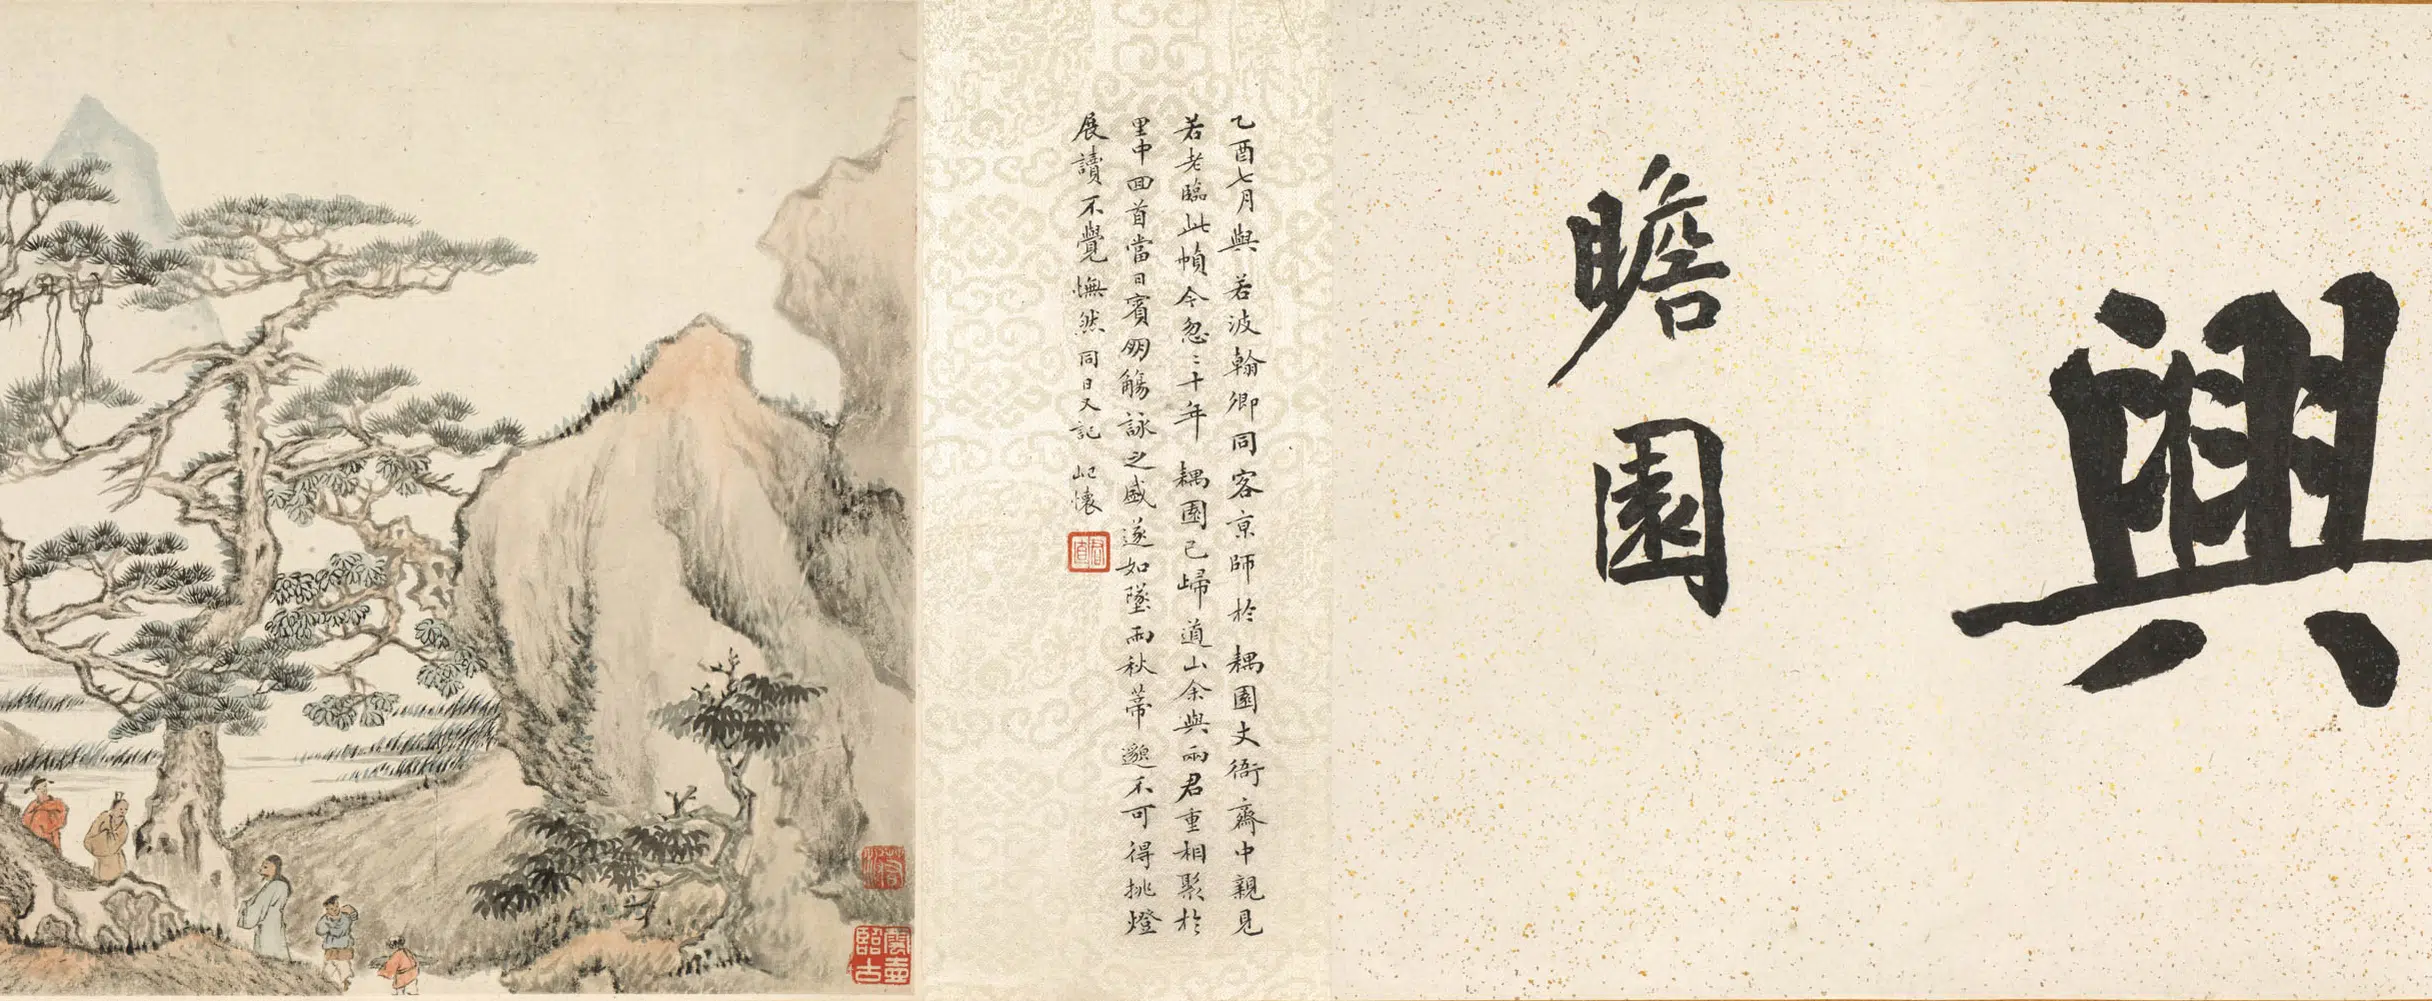 興
瞻園
乙酉七月與若波翰卿同客京師於耦園丈衙齋中親見
若老臨此幀今忽忽二十年耦園已歸道山余與兩君重相聚於
里中回首當日賓朋觴詠之盛遂如墜雨秋蒂邈不可得挑燈
展讀不覺憮然同日又記 屺懷
若波
雲壺
臨古